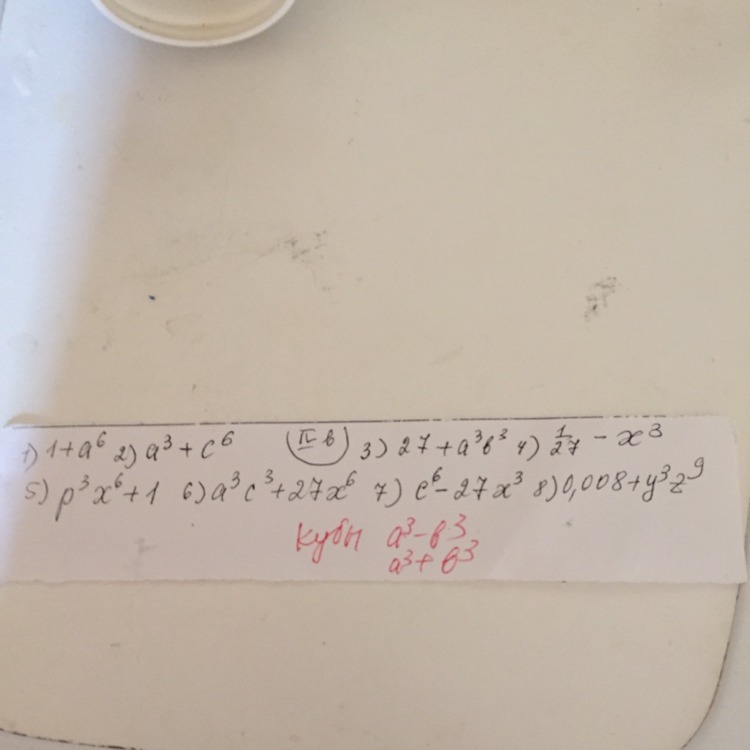 1) 1+a⁶ 2) a³+c⁶ II в 3) 27+a³в³ 4) 1/27 - x³
5) p³x⁶+1 6) a³c³+27x⁶ 7) c⁶-27x³ 8) 0,008+y³z⁹
Кубы a³-в³
a³+в³